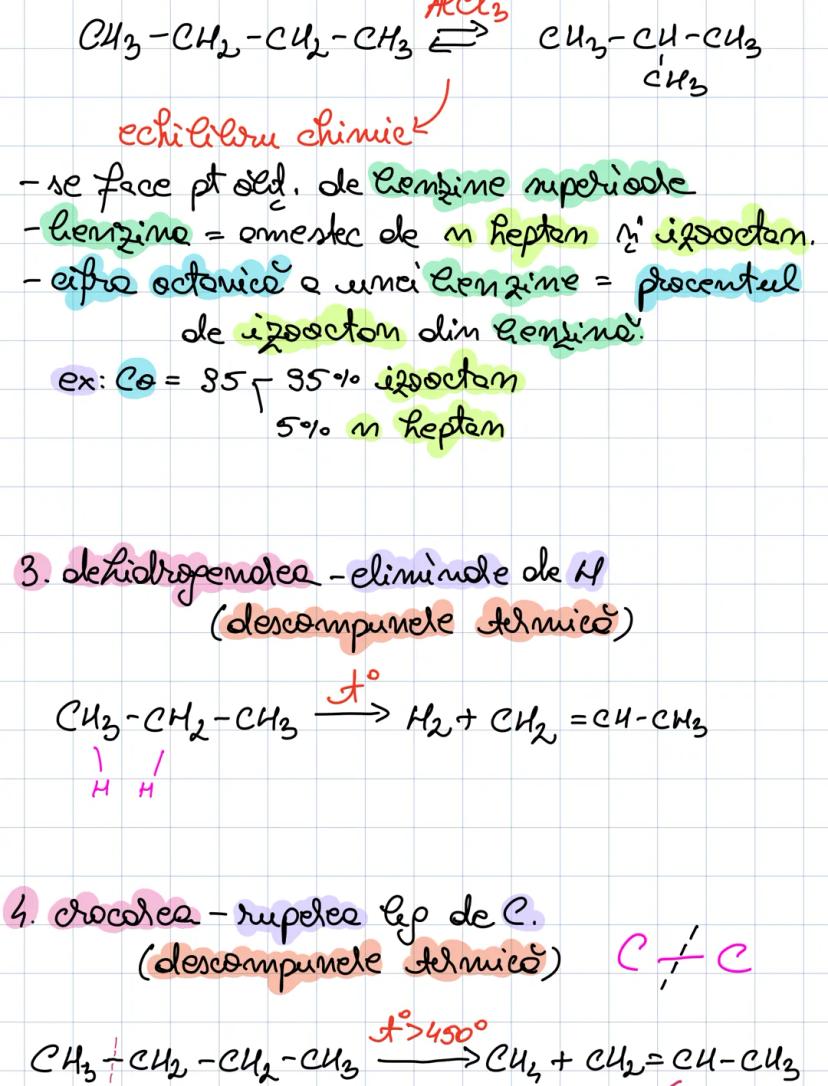 AlCl3
CH3-CH2-CH2-CH3 ⇌ CH3-CH-CH3
CH3
echilibru chimic
- se face pt obț. de benzine superioare
- benzina = amestec de n heptan și izooctan.
- cifra octanică a unei benzine = procentul
de izooctan din benzină.
ex: CO = 95 95% izooctan
5% n heptan
3. dehidrogenarea - eliminare de H
(descompunere termică)
t°
CH3-CH2-CH3 → H2 + CH2=CH-CH3
H H
4. cracarea - ruperea leg de C.
(descompunere termică) C-C
t°>450°
CH3-CH2-CH2-CH3 → CH4 + CH2=CH-CH3